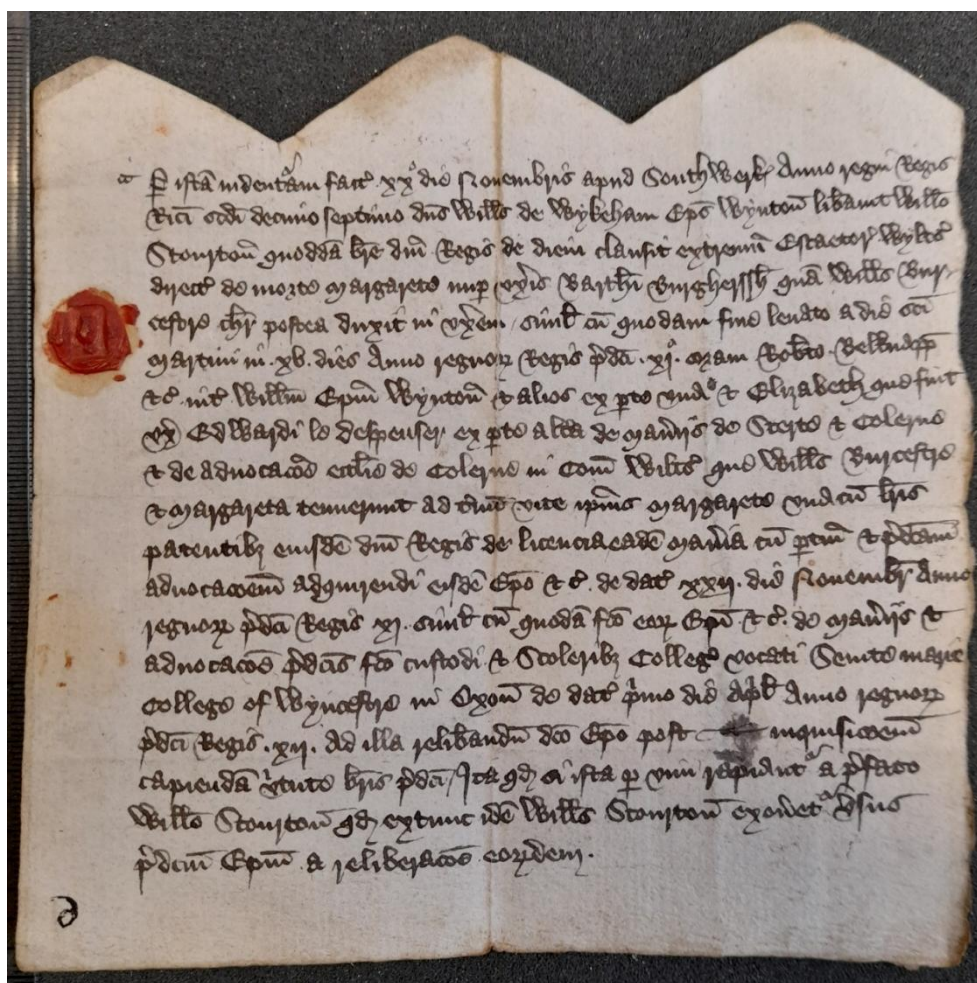 P istā indentᵃm fact̃ xxᵒ die Novembris apud Southwerk Anno regni Regis
Ricī scdī decimo septimo dns Wills de Wykeham Epūs Wyntoñ libavit Willo
Stourtoñ quoddā bre dnī Regis de diem clausit extremū Escaetor Wyltes
direct̃ de morte Margarete nup uxīs Barthī Burgherssh quā Wills Bur-
cestre chr postea duxit in uxem, simil cū quodam fine levato a die scī
Martini in .xv. dies Anno regnoꝝ Regis p̄dcī .xjᵒ. coram Robto Belknapp
&c̃ int̃ Willm Epm Wyntoñ & alios ex pte unaᵃ & Elizabeth que fuit
ux Edwardi le Despenser ex pte altā de Maniis de Sterte & Colerne
& de advocacoe ecclie de Colerne in Com̄ Wiltes que Wills Burcestre
& Margareta tenuerunt ad tm̄ vite ip̄ius Margarete unacū lris
patentibꝫ eiusdē dnī Regis de licencia eadē Mañia cū ptiñ & p̄dc̄am
advocacoem adquirendi eisdē Epo & c̃. de dat̃ xxij. die Novembr Anno
regnoꝝ p̄dcī Regis xj. simil cū quodā fco eoꝝ Epī & c̃. de Maniis &
advocacoe p̄dcis fco custodi & Scolaribꝫ Colleg̃ vocati Seinte Marie
College of Wyncestre in Oxoñ de dat̃ p̄mo die Ap̄l Anno regnoꝝ
p̄dcī Regis .xij. Ad illa relibandū dco Epo post inquisicoem
capiendā v̄tute bris p̄dcī, Ita qd si ista p vim rapiantʳ a p̄fato
Willo Stourtoñ qd extunc idē Wills Stourtoñ exoñetʳ v̄sus
p̄dcm Epm a reliberacoe eoꝝdem.